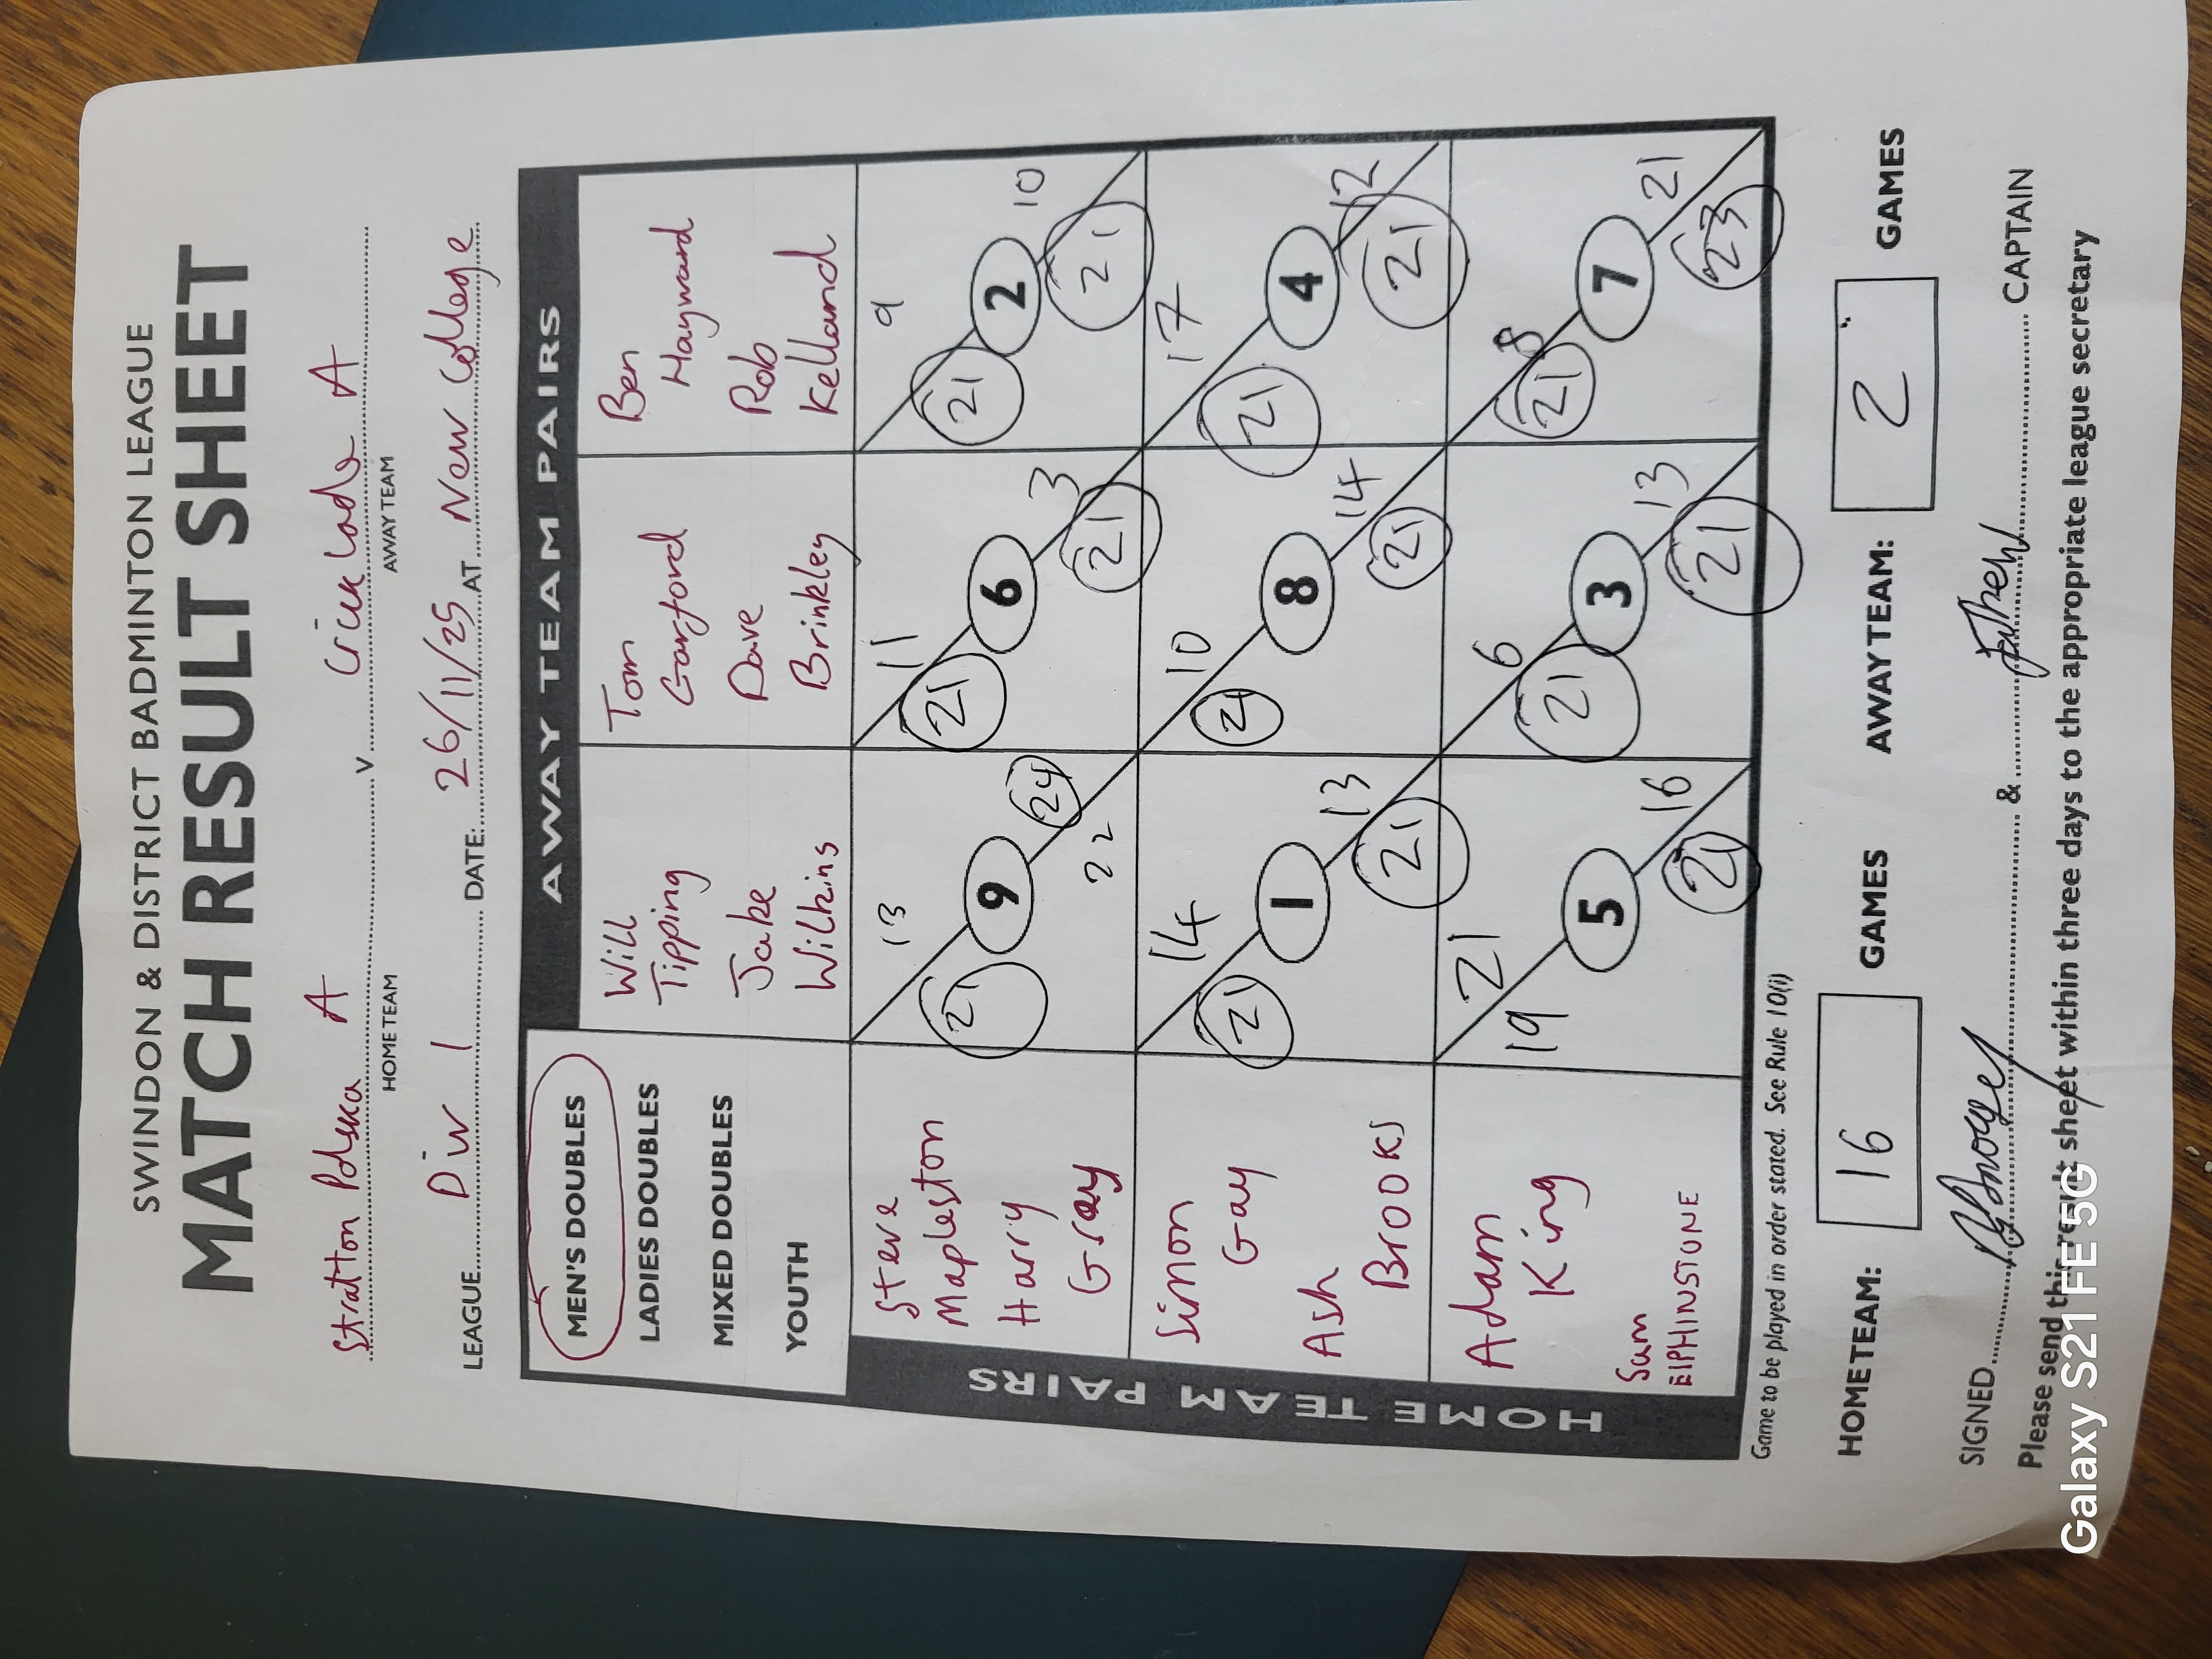 SWINDON & DISTRICT BADMINTON LEAGUE
MATCH RESULT SHEET
Stratton Polska A v Cricklade A
HOME TEAM AWAY TEAM
LEAGUE Div 1 DATE: 26/11/25 AT New College
MEN'S DOUBLES
LADIES DOUBLES
MIXED DOUBLES
YOUTH
AWAY TEAM PAIRS
Will
Tipping
Jake
Wilkins
Tom
Garford
Dave
Brinkley
Ben
Hayward
Rob
Kelland
HOME TEAM PAIRS
Steve
Mapleston
Harry
Gray
13
21 9 24
22
11
21 6 3
21
9
21 2 10
21
Simon
Gay
Ash
BROOKS
14
21 1 13
21
10
21 8 14
21
17
21 4 12
21
Adam
King
Sam
ElPHINSTONE
21
19 5 16
21
6
21 3 13
21
8
21 7 21
23
Game to be played in order stated. See Rule 10(i)
HOME TEAM: 16 GAMES AWAY TEAM: 2 GAMES
SIGNED & CAPTAIN
Please send this result sheet within three days to the appropriate league secretary
Galaxy S21 FE 5G